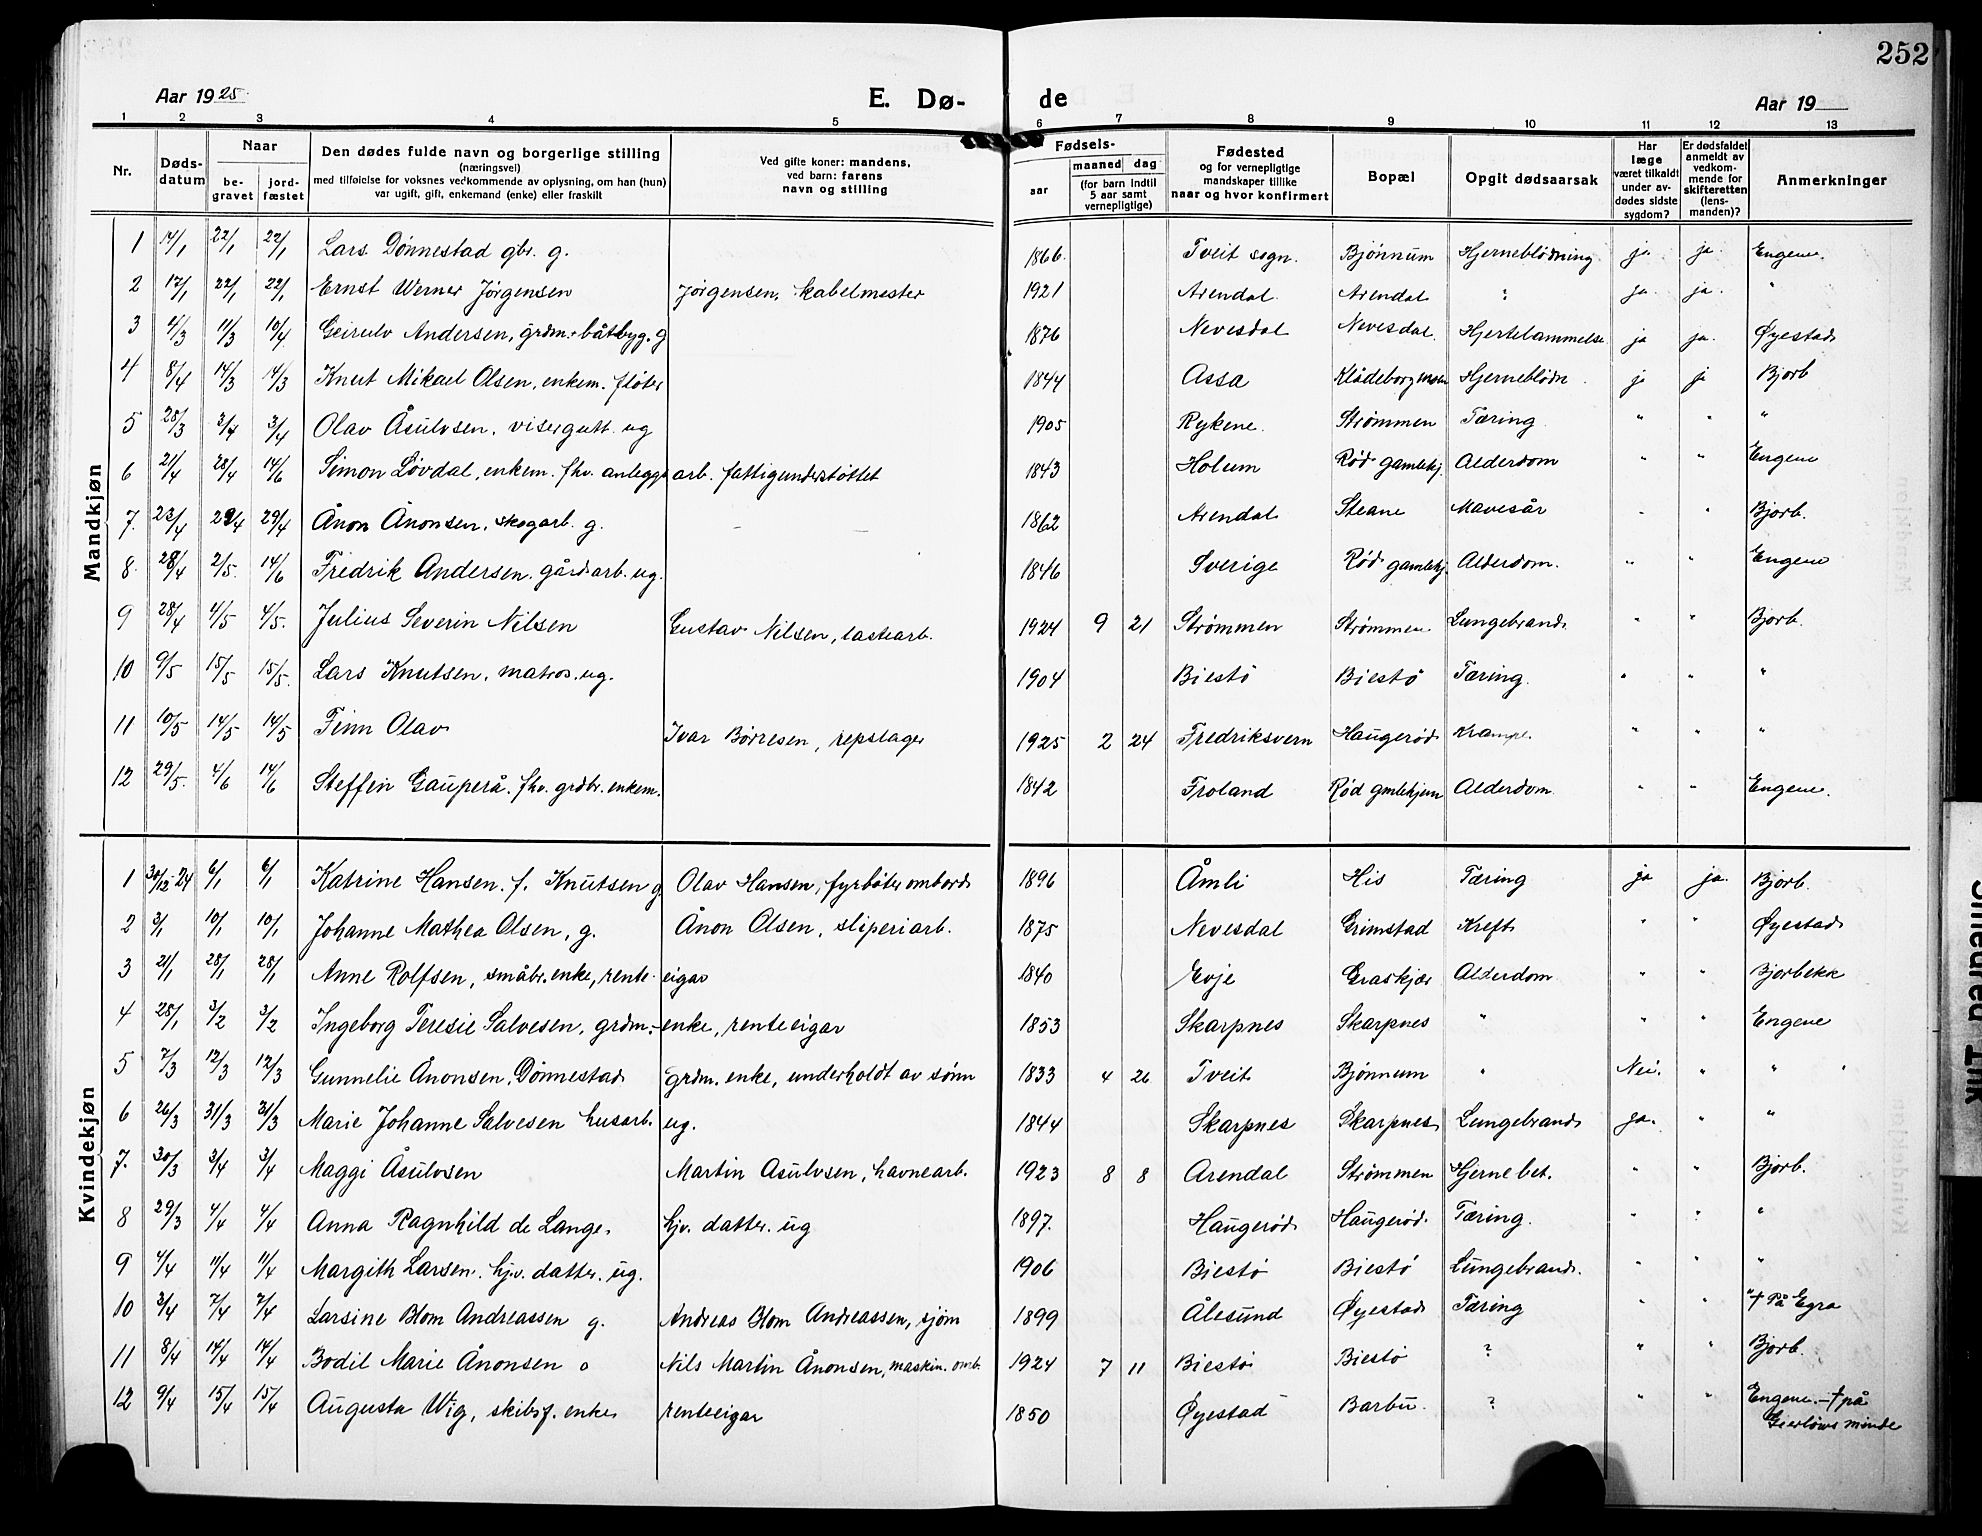 252
Aar 1925 E. Dø- de Aar 19
1 2 3 4 5 6 7 8 9 10 11 12 13
Nr. Døds-datum Naar be-gravet jord-fæstet Den dødes fulde navn og borgerlige stilling (næringsvei) med tilføielse for voksnes vedkommende av oplysning, om han (hun) var ugift, gift, enkemand (enke) eller fraskilt Ved gifte koner: mandens, ved barn: farens navn og stilling Fødsels- aar maaned dag (for barn indtil 5 aar samt vernepligtige) Fødested og for vernepligtige mandskaper tillike naar og hvor konfirmert Bopæl Opgit dødsaarsak Har læge været tilkaldt under av-dødes sidste sygdom? Er dødsfaldet anmeldt av vedkom-mende for skifteretten (lens-manden)? Anmerkninger
Mandkjøn
1 14/1 22/1 22/1 Lars Dønnestad gbr. g. 1866 Tveit sogn. Bjønnum Hjerneblødning ja ja Engene.
2 17/1 22/1 22/1 Ernst Werner Jørgensen Jørgensen, kabelmester 1921 Arendal Arendal ? ja. ja. "
3 4/3 11/3 10/4 Geirulv Andersen, grdm. båtbyg. g 1876 Nevesdal Nevesdal Hjertelammelse ja ja. Øyestad
4 8/4 14/3 14/3 Knut Mikael Olsen, enkem. fløter 1844 Assa Klådeborgmoen Hjerneblødn. ja ja Bjorb
5 28/3 3/4 3/4 Olav Åsulvsen, visergutt. ug 1905 Rykene. Strømmen Tæring " " "
6 21/4 28/4 14/6 Simon Løvdal, enkem. fhv. anleggsarb. fattigunderstøttet 1843 Holum Rød gamlehj. Alderdom " " Engene
7. 23/4 29/4 29/4 Ånon Ånonsen, skogarb. g. 1862 Arendal Steane Mavesår " " Bjorb.
8. 28/4 2/5. 14/6 Fredrik Andersen. gårdsarb. ug. 1846 Sverige Rød gamlehj. Alderdom. " " Engene
9 28/4 4/5 4/5. Julius Severin Nilsen Gustav Nilsen, lastearb. 1924 9 21 Strømmen Strømmen Lungebrand " " Bjorb.
10 9/5 15/5 15/5. Lars Knutsen, matros. ug. 1904 Biestø Biestø Tæring. " " "
11 10/5 14/5 14/5 Finn Olav Ivar Børresen, repslager 1925 2 24 Fredriksvern Haugerød Krampe. " " "
12 29/5. 4/6 14/6 Steffen Gauperå. fhv. grdbr. enkem. 1842 Froland Rød gmlehjem Alderdom " " Engene.
Kvindekjøn
1 30/12-24 6/1 6/1 Katrine Hansen. f. Knutsen g Olav Hansen, fyrbøter ombord 1896 Åmli His Tæring ja ja. Bjorb.
2 3/1 10/1 10/1 Johanne Mathea Olsen, g. Ånon Olsen, sliperiarb. 1875 Nevesdal Grimstad Kreft " " Øyestad
3 21/1 28/1 28/1 Anne Rolfsen, småbr. enke, renteeigar 1840 Evje Graskjær Alderdom " " Bjorbekk
4 28/1 3/2 3/2 Ingeborg Teresie Salvesen, grdm.-enke, renteeigar 1853 Skarpnes Skarpnes " " " Engene
5 7/3 12/3 12/3 Gunnelie Ånonsen, Dønnestad grdm. enke, underholdt av sønn 1833 4 26 Tveit Bjønnum " Nei. " "
6 26/3 31/3 31/3 Marie Johanne Salvesen husarb. ug. 1844 Skarpnes Skarpnes Lungebrand ja. " "
7. 30/3 3/4 3/4 Maggi Åsulvsen Martin Asulvsen, havnearb. 1923 8 8 Arendal Strømmen Hjernebet. " " Bjorb.
8 29/3 4/4 4/4 Anna Ragnhild de Lange. hjv. datter. ug 1897. Haugerød Haugerød. Tæring. " " "
9 4/4 11/4 11/4 Margith Larsen. hjv. datter. ug. 1906 Biestø Biestø Lungebrand. " " "
10 3/4 7/4 7/4 Larsine Blom Andreassen g. Andreas Blom Andreassen, sjøm 1899 Ålesund Øyestad Tæring " " " † På Egra
11 8/4 14/4 14/4 Bodil Marie Ånonsen Nils Martin Ånonsen, maskin. omb. 1924 7 11 Biestø Biestø ? " " Bjorb.
12 9/4 15/4 15/4 Augusta Wig, skibsf. enke renteeigar 1850 Øyestad Barbu. ? " " Engene. - † på